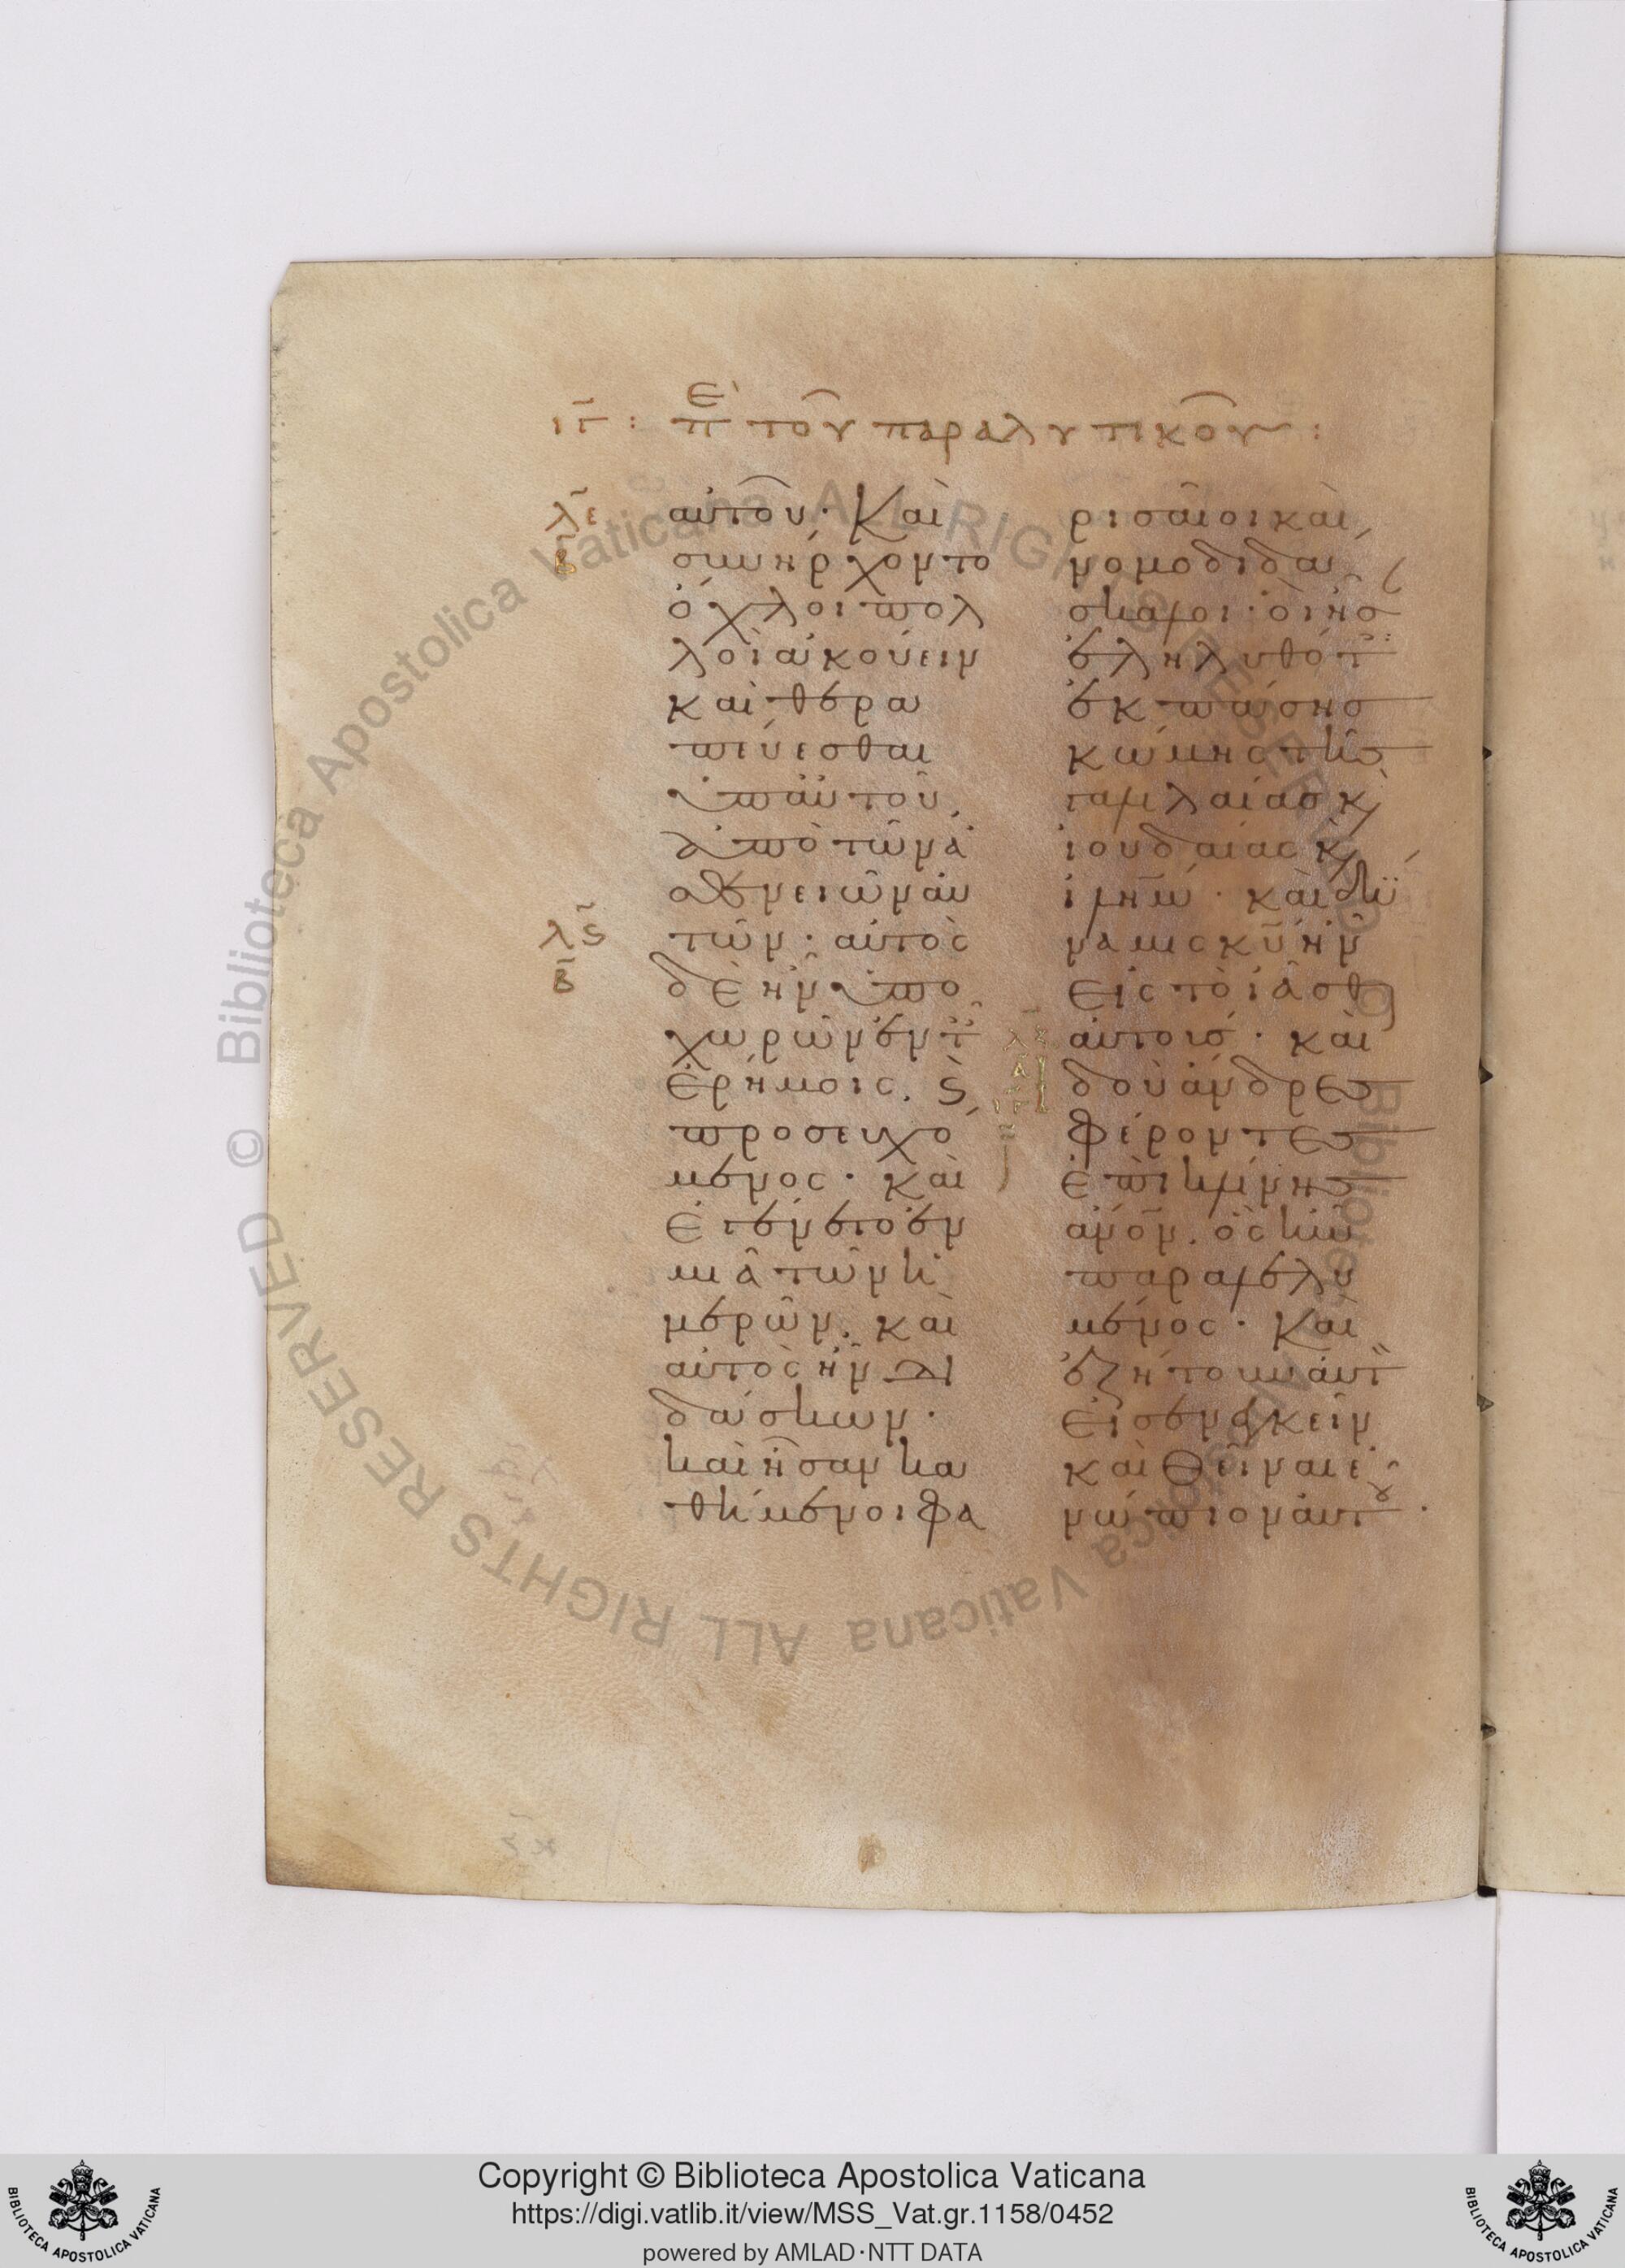 ιγ : περὶ τοῦ παραλυτικοῦ :
λε
β
αὐτοῦ· Καὶ
συνήρχοντο
ὄχλοι πολ
λοὶ ἀκούειν
καὶ θερα
πεύεσθαι
ὑπ αὐτοῦ,
ἀπὸ τῶν ἀ
σθενειῶν αὐ
λς
β
τῶν· αὐτὸς
δὲ ἦν ὑπο
χωρῶν ἐν τ
ἐρήμοις. ϛ
προσευχό
μενος· καὶ
ἐγένετο ἐν
μιᾶ τῶν ἡ
μερῶν, καὶ
αὐτὸς ἦν δι
δάσκων·
καὶ ἦσαν κα
θήμενοι φα
ρισαῖοι καὶ
νομοδιδά
σκαλοι· οἳ ἦσ
ἐληλυθότ
ἐκ πάσης
κώμης τῆς
γαλιλαίας κ
ἰουδαίας κ
ιλημ· καὶ δύ
ναμις κυ ἦν
εἰς τὸ ἰᾶσθ
λζ
α
αὐτοῖς· καὶ
ἰδοὺ ἄνδρες
φέροντες
ἐπὶ κλίνης
ανον. ὃς ἦν
παραλελυ
μένος· Καὶ
ἐζήτουν αὐτ
εἰσενεγκεῖν
καὶ θεῖναι ἐ
νώπιον αὐτου·
© Biblioteca Apostolica Vaticana ALL RIGHTS RESERVED
© Biblioteca Apostolica Vaticana ALL RIGHTS RESERVED
Copyright © Biblioteca Apostolica Vaticana
https://digi.vatlib.it/view/MSS_Vat.gr.1158/0452
powered by AMLAD·NTT DATA
BIBLIOTECA APOSTOLICA VATICANA
BIBLIOTECA APOSTOLICA VATICANA